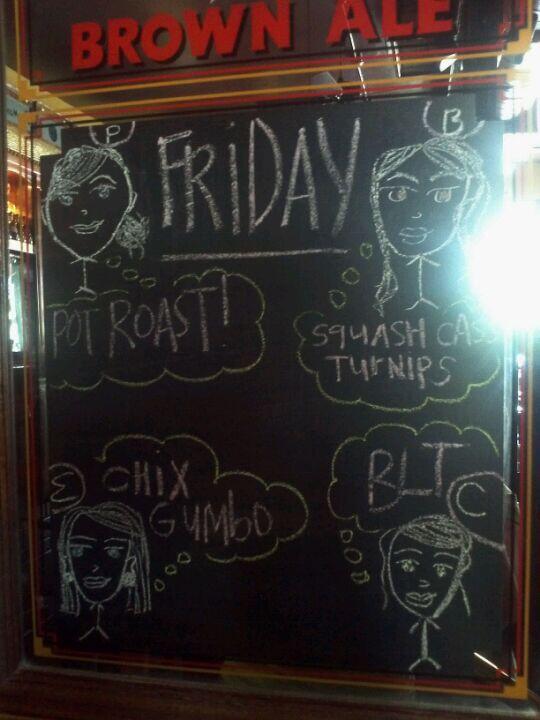 BROWN ALE
P
B
FRIDAY
POT ROAST!
SQUASH CAS
TURNIPS
CHIX
GUMBO
BLT
C